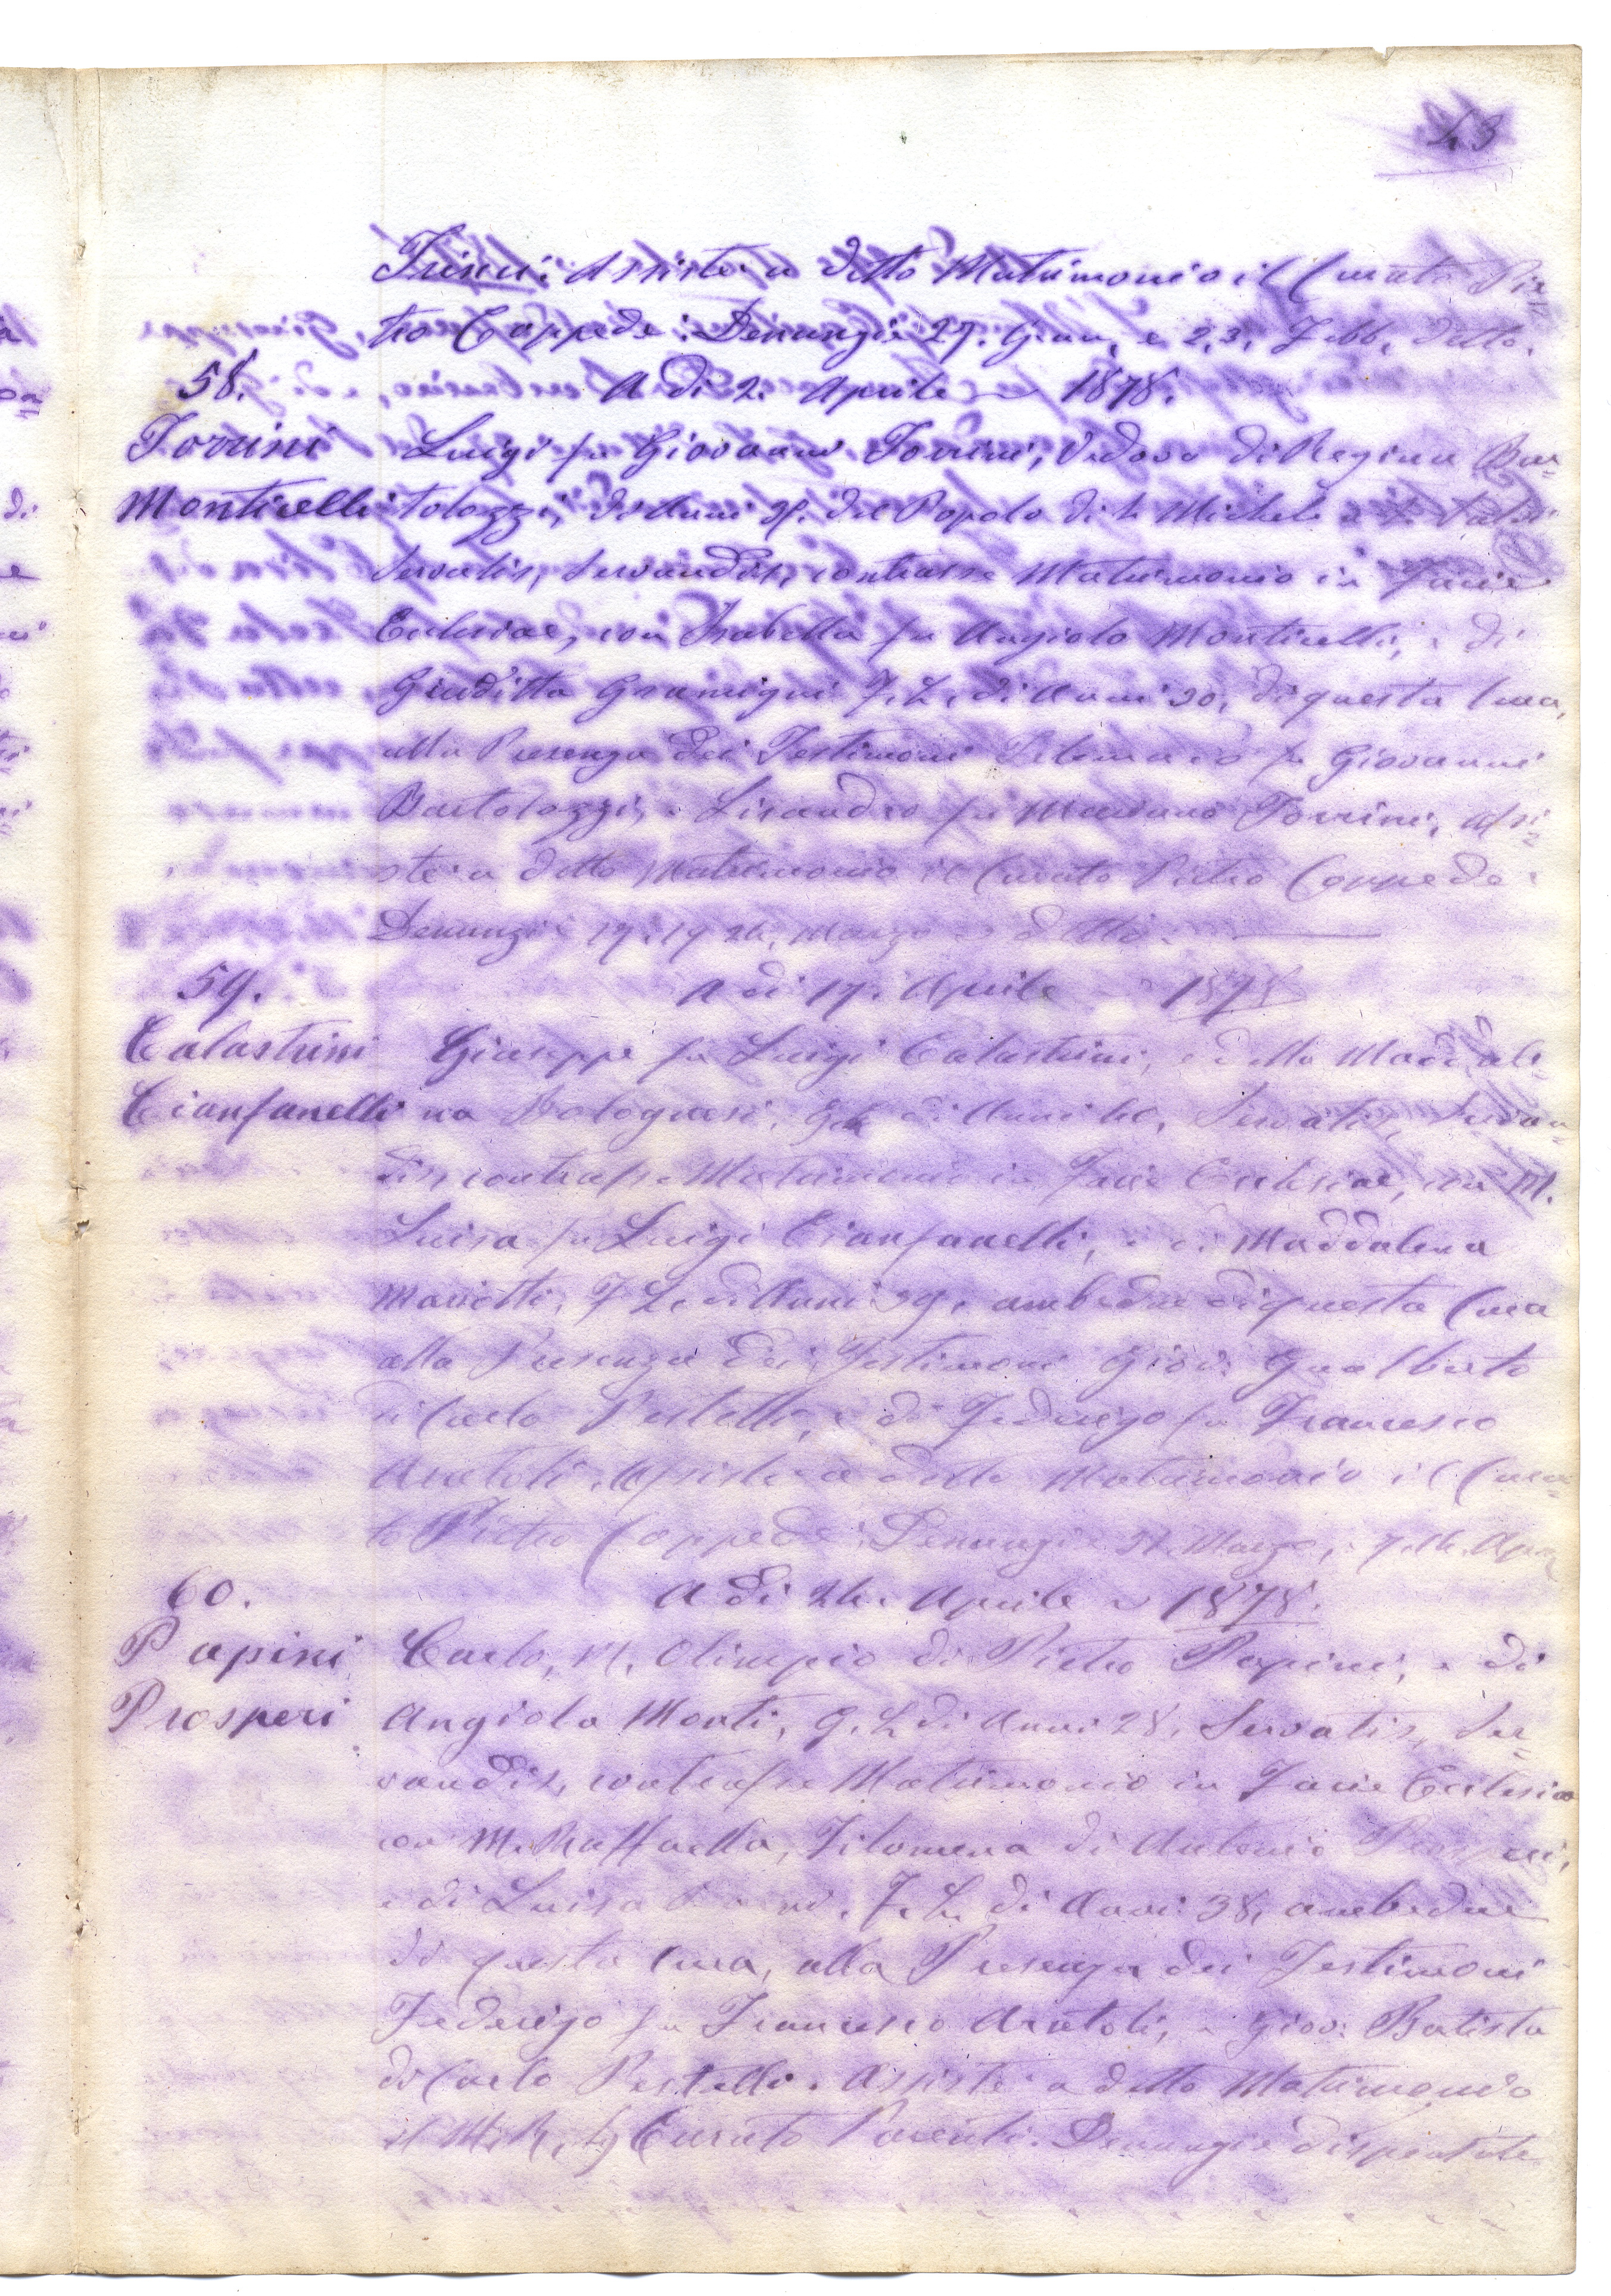 43
Assistè a detto Matrimonio il Curato Pie=
tro Coppede: Denunzie 27. Genn, e 2,3, Febb, detto.
58. A di 2. Aprile 1878.
Torrini Luigi fu Giovanni Torrini, Vedovo di Regina Bar=
Monticelli tolozzi, di Anni del Popolo di S. Michele
Servatis, Servandis, contrasse Matrimonio in Facie
Ecclesiae, con Isabella fu Angiolo Monticelli, e di
Giuditta Gramigni F. L. di Anni 30, di questa Cura,
alla Presenza dei Testimoni fu Giovanni
Bartolozzi, e Lisandro fu Mariano Torrini, Assi=
stè a detto Matrimonio il Curato Pietro Coppede:
Denunzie 17. 19 24, Marzo detto.
59. A di 17. Aprile 1878
Calastrini Giuseppe fu Luigi Calastrini, e della Maddale=
Cianfanelli na Bolognesi, di Anni 40, Servatis, Servan=
dis, contrasse Matrimonio in Facie Ecclesiae, con M.
Luisa fu Luigi Cianfanelli, e di Maddalena
Mariotti, F. L. di Anni 39, ambedue di questa Cura
alla Presenza dei Testimoni Giov: Gualberto
di Carlo Pestelli, e di Federigo fu Francesco
Aratoli. Assistè a detto Matrimonio il Cura=
to Pietro Coppede: Denunzie 31. Marzo, e 7. 14. Apr.
60. A di 24. Aprile 1878.
Papini Carlo, M, Olimpio di Pietro Papini, e di
Prosperi Angiola Monti, G. L. di Anni 28, Servatis, Ser=
vandis, contrasse Matrimonio in Facie Ecclesiae
con M. Raffaella, Filomena di Antonio Prosperi,
e di Luisa F. L. di Anni 38, ambedue
di questa Cura, alla Presenza dei Testimoni
Federigo fu Francesco Aratoli, e Giov: Batista
di Carlo Pestelli. Assistè a detto Matrimonio
il M. R. Curato Parenti. Denunzie dispensate